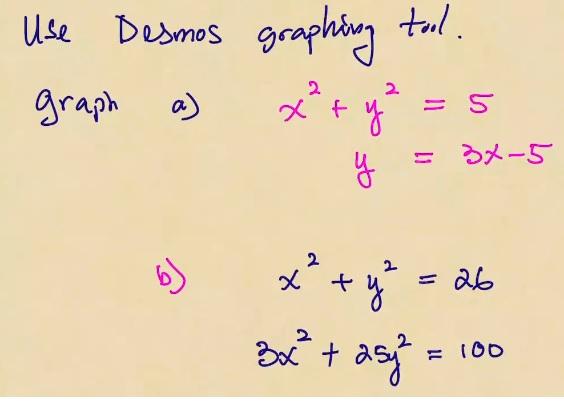 Use Desmos graphing tool.
graph a) x² + y² = 5
y = 3x-5
b) x² + y² = 26
3x² + 25y² = 100